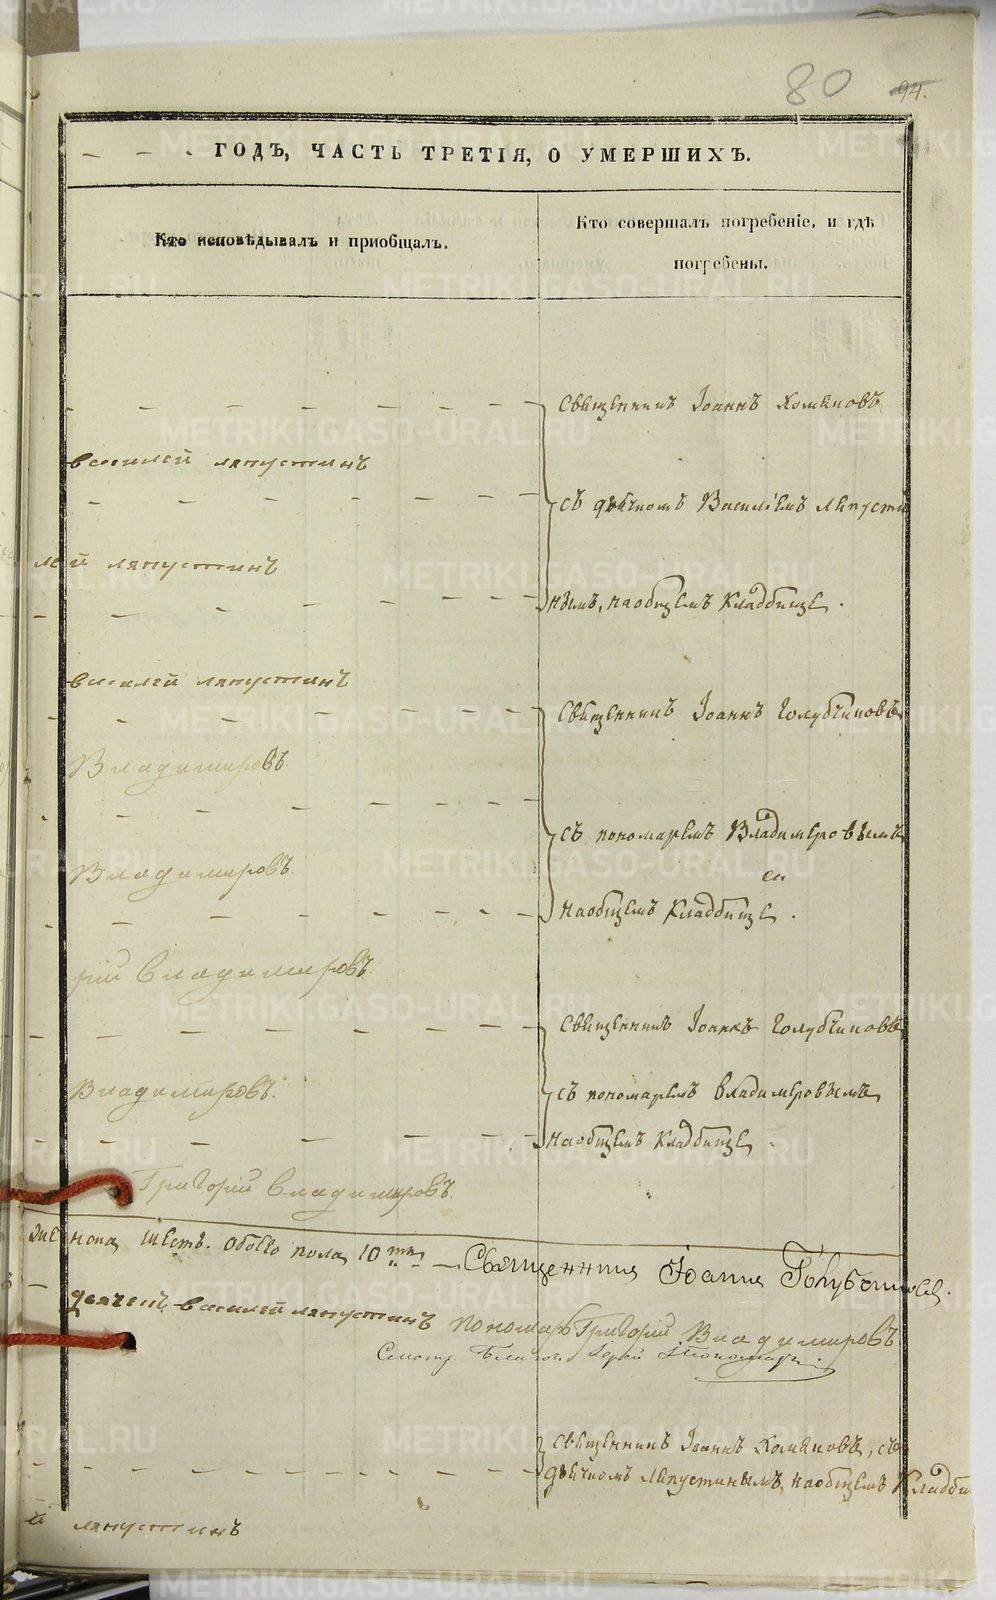 80 94.
ГОДЪ, ЧАСТЬ ТРЕТІЯ, О УМЕРШИХЪ.
Кто исповѣдывалъ и пріобщалъ.
Кто совершалъ погребеніе, и гдѣ
погребены.
Священникъ Іоаннъ Хомяковъ
василей ляпустинъ
съ дьячкомъ Василіемъ Ляпусти
лей ляпустинъ
нымъ, наобщемъ кладбище.
василей ляпустинъ
Священникъ Іоаннъ Голубчиковъ
Владимировъ
съ пономаремъ Владимеровымъ
Владимировъ
наобщемъ кладбище.
рій Владимировъ
Священникъ Іоаннъ Голубчиковъ
съ пономаремъ владимеровымъ
Владимировъ.
наобщемъ кладбище.
Григорій Владимировъ.
шесть. обоего пола 10ть Священникъ Іоаннъ Голубчиковъ.
дьячекъ василей ляпустинъ пономарь Григорій Владимировъ
священникъ Іоаннъ Хомяковъ, съ
дьячкомъ Ляпустинымъ, наобщемъ кладби
й ляпустинъ
METRIKI.GASO-URAL.RU